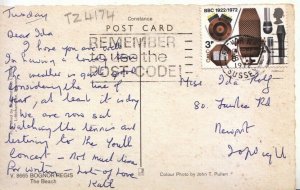 Tuesday
TZ4174
Constance
POST CARD
BBC 1922/1972
3p
REMEMBER
to use the
POST CODE
SUSSEX
Dear Ida
I hope you are well
I'm having a lovely
The weather is good
considering the time of
year, at least it is today
We are now sat
watching the tennis and
listening to the Youth
Concert - Not much time
for writing. Lots of love
Kate
Miss Ida
80,
Newport
V. 8665 BOGNOR REGIS
The Beach
Colour Photo by John T. Pullen